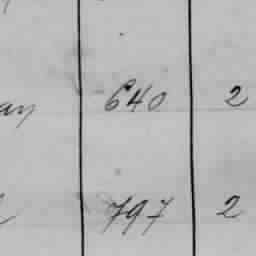 640 2
797 2